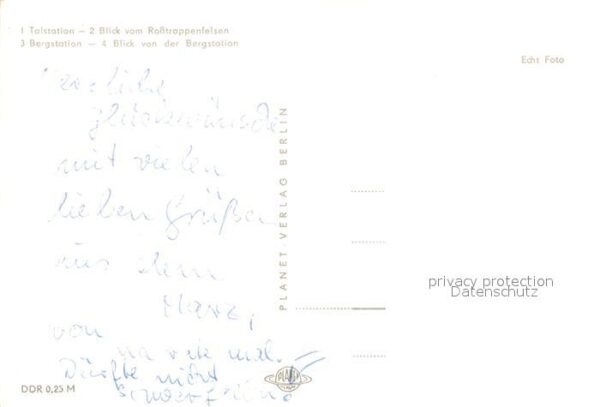 1 Talstation — 2 Blick vom Roßtrappenfelsen
3 Bergstation — 4 Blick von der Bergstation
Echt Foto
Herzliche
Glückwünsche
mit vielen
lieben Grüßen
aus dem
Harz,
von
na rate mal.
Dürfte nicht
schwer fallen!
PLANET-VERLAG BERLIN
privacy protection
Datenschutz
DDR 0,25 M
PLANET